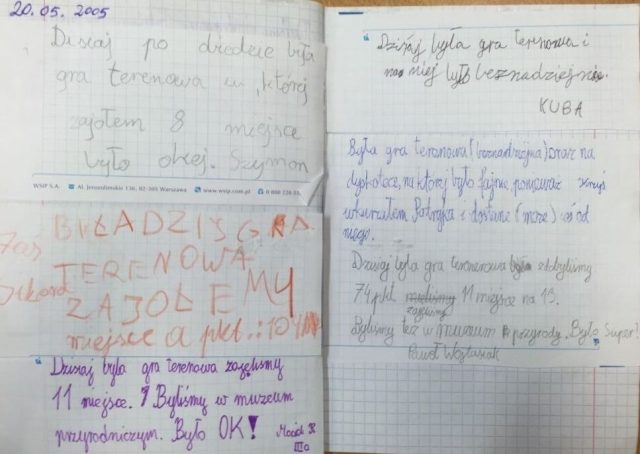 20.05.2005
Dzisiaj po obiedzie była
gra terenowa w, której
zajołem 8 miejsce
było okej. Szymon
WSiP S.A. Al. Jerozolimskie 136, 02-305 Warszawa www.wsip.com.pl
BYŁA DZIŚ GRA
TERENOWA
ZAJOLEMY
miejsce a pkt.: 104
Dzisiaj była gra terenowa zajęliśmy
11 miejsce. Byliśmy w muzeum
przyrodniczym. Było OK!
III a
Dzisiaj była gra terenowa i
na niej było beznadziejnie.
KUBA
Była gra terenowa (beznadziejna) oraz na
dyskotece, na której było fajnie, ponieważ
wkurzałem Patryka i dostane (może) coś od
niego.
Dzisiaj była gra terenowa zdobyliśmy
74 pkt. zajęliśmy 11 miejsce na 13.
Byliśmy też w muzeum przyrody. Było Super!
Paweł Wojtasiak